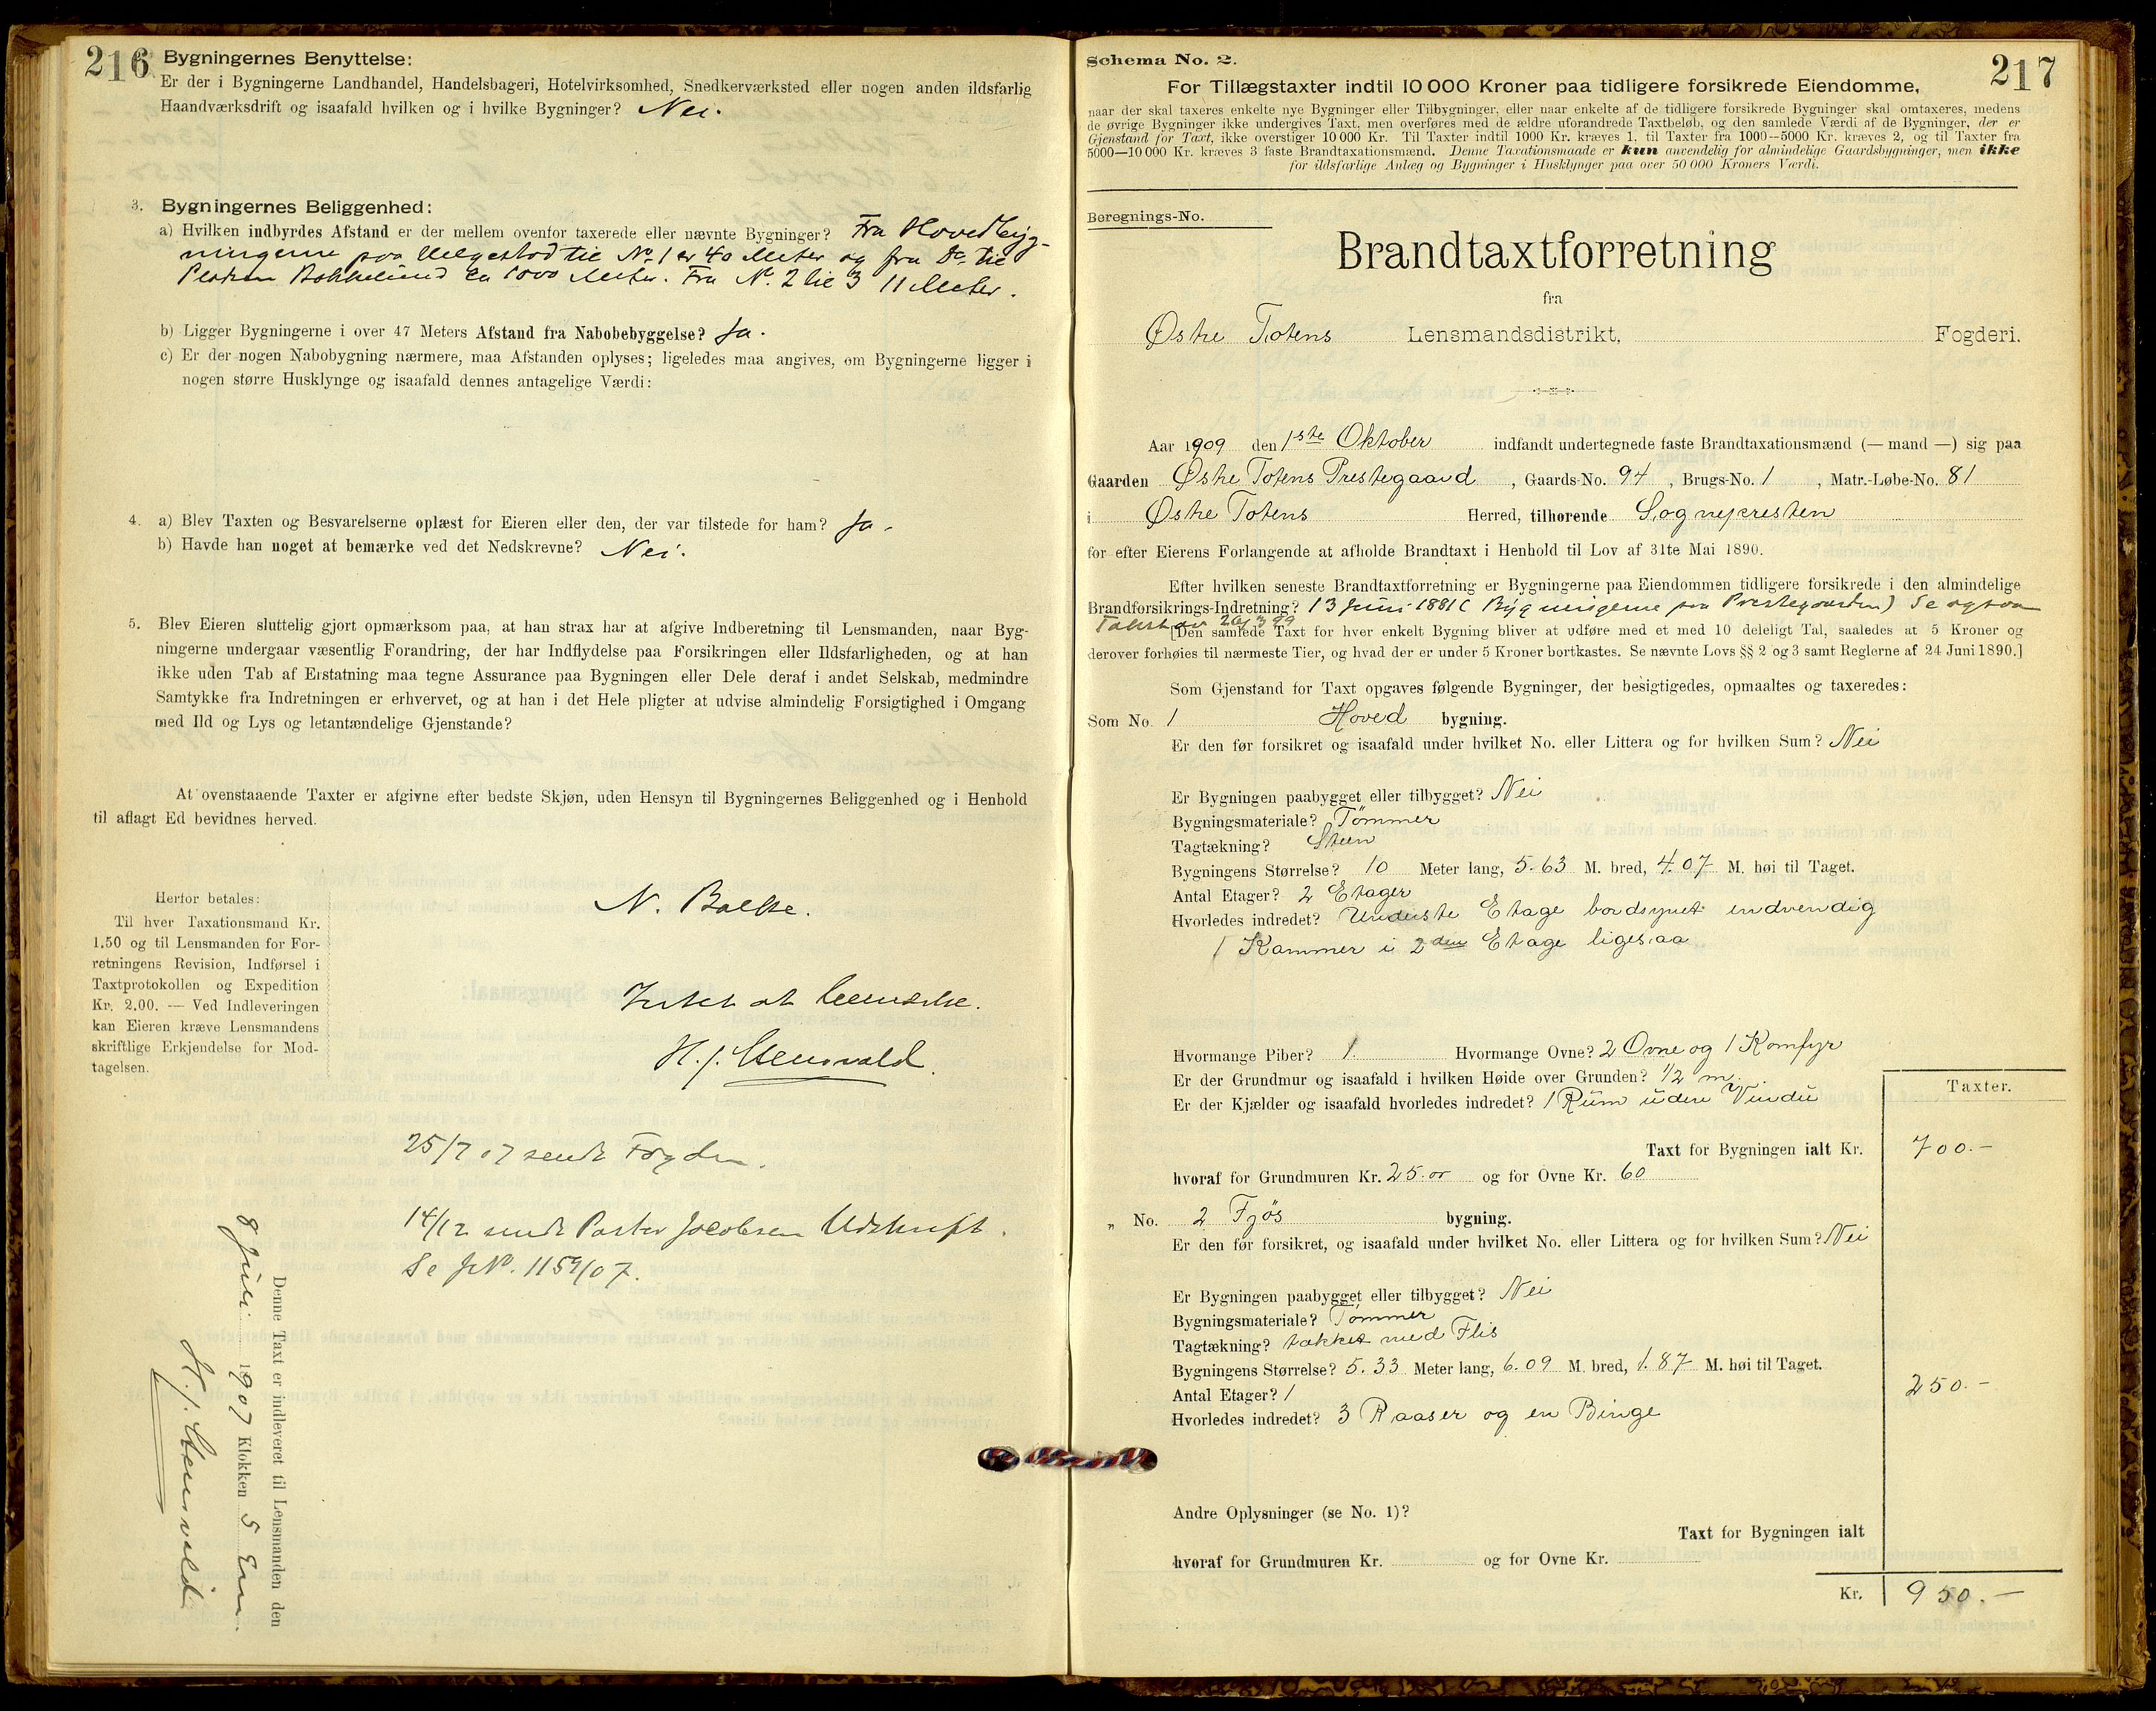 216
Bygningernes Benyttelse:
Er der i Bygningerne Landhandel, Handelsbageri, Hotelvirksomhed, Snedkerværksted eller nogen anden ildsfarlig
Haandværksdrift og isaafald hvilken og i hvilke Bygninger? Nei.
3. Bygningernes Beliggenhed:
a) Hvilken indbyrdes Afstand er der mellem ovenfor taxerede eller nævnte Bygninger? Fra Hovedbyg-
ningerne paa Helgestad til No 1 er 40 Meter og fra Do til
Pladsen Bakkelund ca 1000 Meter. Fra No. 2 til 3 11 Meter.
b) Ligger Bygningerne i over 47 Meters Afstand fra Nabobebyggelse? Ja.
c) Er der nogen Nabobygning nærmere, maa Afstanden oplyses; ligeledes maa angives, om Bygningerne ligger i
nogen større Husklynge og isaafald dennes antagelige Værdi:
4. a) Blev Taxten og Besvarelserne oplæst for Eieren eller den, der var tilstede for ham? Ja.
b) Havde han noget at bemærke ved det Nedskrevne? Nei.
5. Blev Eieren sluttelig gjort opmærksom paa, at han strax har at afgive Indberetning til Lensmanden, naar Byg-
ningerne undergaar væsentlig Forandring, der har Indflydelse paa Forsikringen eller Ildsfarligheden, og at han
ikke uden Tab af Erstatning maa tegne Assurance paa Bygningen eller Dele deraf i andet Selskab, medmindre
Samtykke fra Indretningen er erhvervet, og at han i det Hele pligter at udvise almindelig Forsigtighed i Omgang
med Ild og Lys og letantændelige Gjenstande?
At ovenstaaende Taxter er afgivne efter bedste Skjøn, uden Hensyn til Bygningernes Beliggenhed og i Henhold
til aflagt Ed bevidnes herved.
N. Balke.
H. J. Stensvold.
Herfor betales:
Til hver Taxationsmand Kr.
1.50 og til Lensmanden for For-
retningens Revision, Indførsel i
Taxtprotokollen og Expedition
Kr. 2.00. — Ved Indleveringen
kan Eieren kræve Lensmandens
skriftlige Erkjendelse for Mod-
tagelsen.
25/7 07 sendt Fogden.
14/12 sendt Pastor Jacobsen Udskrift.
Se JNo. 1159/07.
Denne Taxt er indleveret til Lensmanden den
8 Juli 1907 Klokken 5 Em.
H. J. Stensvold
217
Schema No. 2.
For Tillægstaxter indtil 10 000 Kroner paa tidligere forsikrede Eiendomme,
naar der skal taxeres enkelte nye Bygninger eller Tilbygninger, eller naar enkelte af de tidligere forsikrede Bygninger skal omtaxeres, medens
de øvrige Bygninger ikke undergives Taxt, men overføres med de ældre uforandrede Taxtbeløb, og den samlede Værdi af de Bygninger, der er
Gjenstand for Taxt, ikke overstiger 10 000 Kr. Til Taxter indtil 1000 Kr. kræves 1, til Taxter fra 1000—5000 Kr. kræves 2, og til Taxter fra
5000—10 000 Kr. kræves 3 faste Brandtaxationsmænd. Denne Taxationsmaade er kun anvendelig for almindelige Gaardsbygninger, men ikke
for ildsfarlige Anlæg og Bygninger i Husklynger paa over 50 000 Kroners Værdi.
Beregnings-No.
Brandtaxtforretning
fra
Østre Totens Lensmandsdistrikt, Fogderi.
Aar 1909 den 1ste Oktober indfandt undertegnede faste Brandtaxationsmænd (— mand —) sig paa
Gaarden Østre Totens Prestegaard, Gaards-No. 94, Brugs-No. 1, Matr.-Løbe-No. 81
i Østre Totens Herred, tilhørende Sognepresten
for efter Eierens Forlangende at afholde Brandtaxt i Henhold til Lov af 31te Mai 1890.
Efter hvilken seneste Brandtaxtforretning er Bygningerne paa Eiendommen tidligere forsikrede i den almindelige
Brandforsikrings-Indretning? 13 Juni 1881 (Bygningerne paa Prestegaarden) Se ogsaa
[Den samlede Taxt for hver enkelt Bygning bliver at udføre med et med 10 deleligt Tal, saaledes at 5 Kroner og
derover forhøies til nærmeste Tier, og hvad der er under 5 Kroner bortkastes. Se nævnte Lovs §§ 2 og 3 samt Reglerne af 24 Juni 1890.]
Som Gjenstand for Taxt opgaves følgende Bygninger, der besigtigedes, opmaaltes og taxeredes:
Som No. 1 Hoved bygning.
Er den før forsikret og isaafald under hvilket No. eller Littera og for hvilken Sum? Nei
Er Bygningen paabygget eller tilbygget? Nei
Bygningsmateriale? Tömmer
Tagtækning? Steen
Bygningens Størrelse? 10 Meter lang, 5.63 M. bred, 4.07 M. høi til Taget.
Antal Etager? 2 Etager
Hvorledes indredet? Underste Etage bordsynet indvendig
1 Kammer i 2den Etage ligesaa
Hvormange Piber? 1 Hvormange Ovne? 2 Ovne og 1 Komfyr
Er der Grundmur og isaafald i hvilken Høide over Grunden? 1/2 m.
Er der Kjælder og isaafald hvorledes indredet? 1 Rum uden Vindu
Taxter.
Taxt for Bygningen ialt Kr. 700.-
hvoraf for Grundmuren Kr. 25.00 og for Ovne Kr. 60
„ No. 2 Fjös bygning.
Er den før forsikret, og isaafald under hvilket No. eller Littera og for hvilken Sum? Nei
Er Bygningen paabygget eller tilbygget? Nei
Bygningsmateriale? Tömmer
Tagtækning? takket med Flis
Bygningens Størrelse? 5.33 Meter lang, 6.09 M. bred, 1.87 M. høi til Taget.
Antal Etager? 1 250.-
Hvorledes indredet? 3 Baaser og en Binge
Andre Oplysninger (se No. 1)?
Taxt for Bygningen ialt
hvoraf for Grundmuren Kr. og for Ovne Kr.
Kr. 950.-